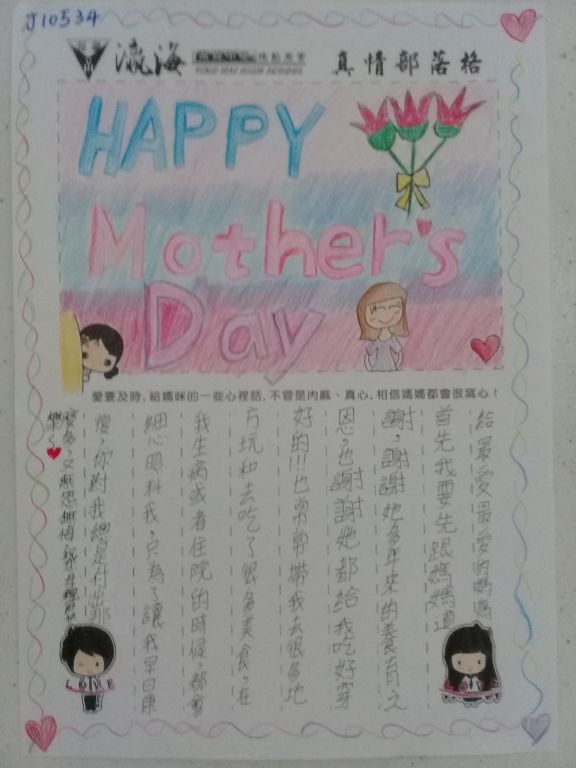 J10534
瀛海
YING HAI HIGH SCHOOL
真情部落格
HAPPY
Mother's
Day
愛要及時,給媽咪的一些心裡話,不管是肉麻、真心,相信媽媽都會很窩心!
給最愛最愛的媽媽
首先我要先跟媽媽道
謝,謝謝她多年來的養育之
恩,也謝謝她都給我吃好穿
好的!!!也常常帶我去很多地
方玩和去吃了很多美食,在
我生病或者住院的時候,都會
細心照料我,只為了讓我早日康
復,你對我總是付出那
麼多,又無怨無悔